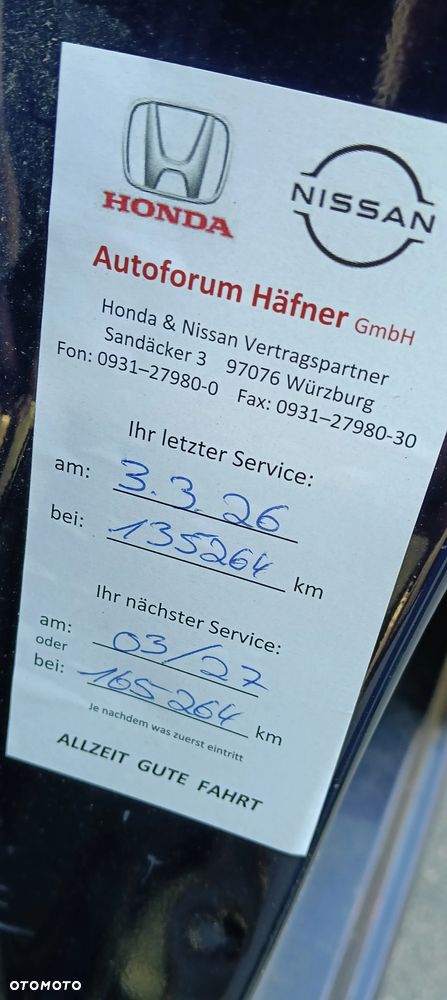 HONDA
NISSAN
Autoforum Häfner GmbH
Honda & Nissan Vertragspartner
Sandäcker 3 97076 Würzburg
Fon: 0931–27980-0 Fax: 0931–27980-30
Ihr letzter Service:
am: 3.3.26
bei: 135264 km
Ihr nächster Service:
am: 03/27
oder
bei: 165264 km
Je nachdem was zuerst eintritt
ALLZEIT GUTE FAHRT
OTOMOTO